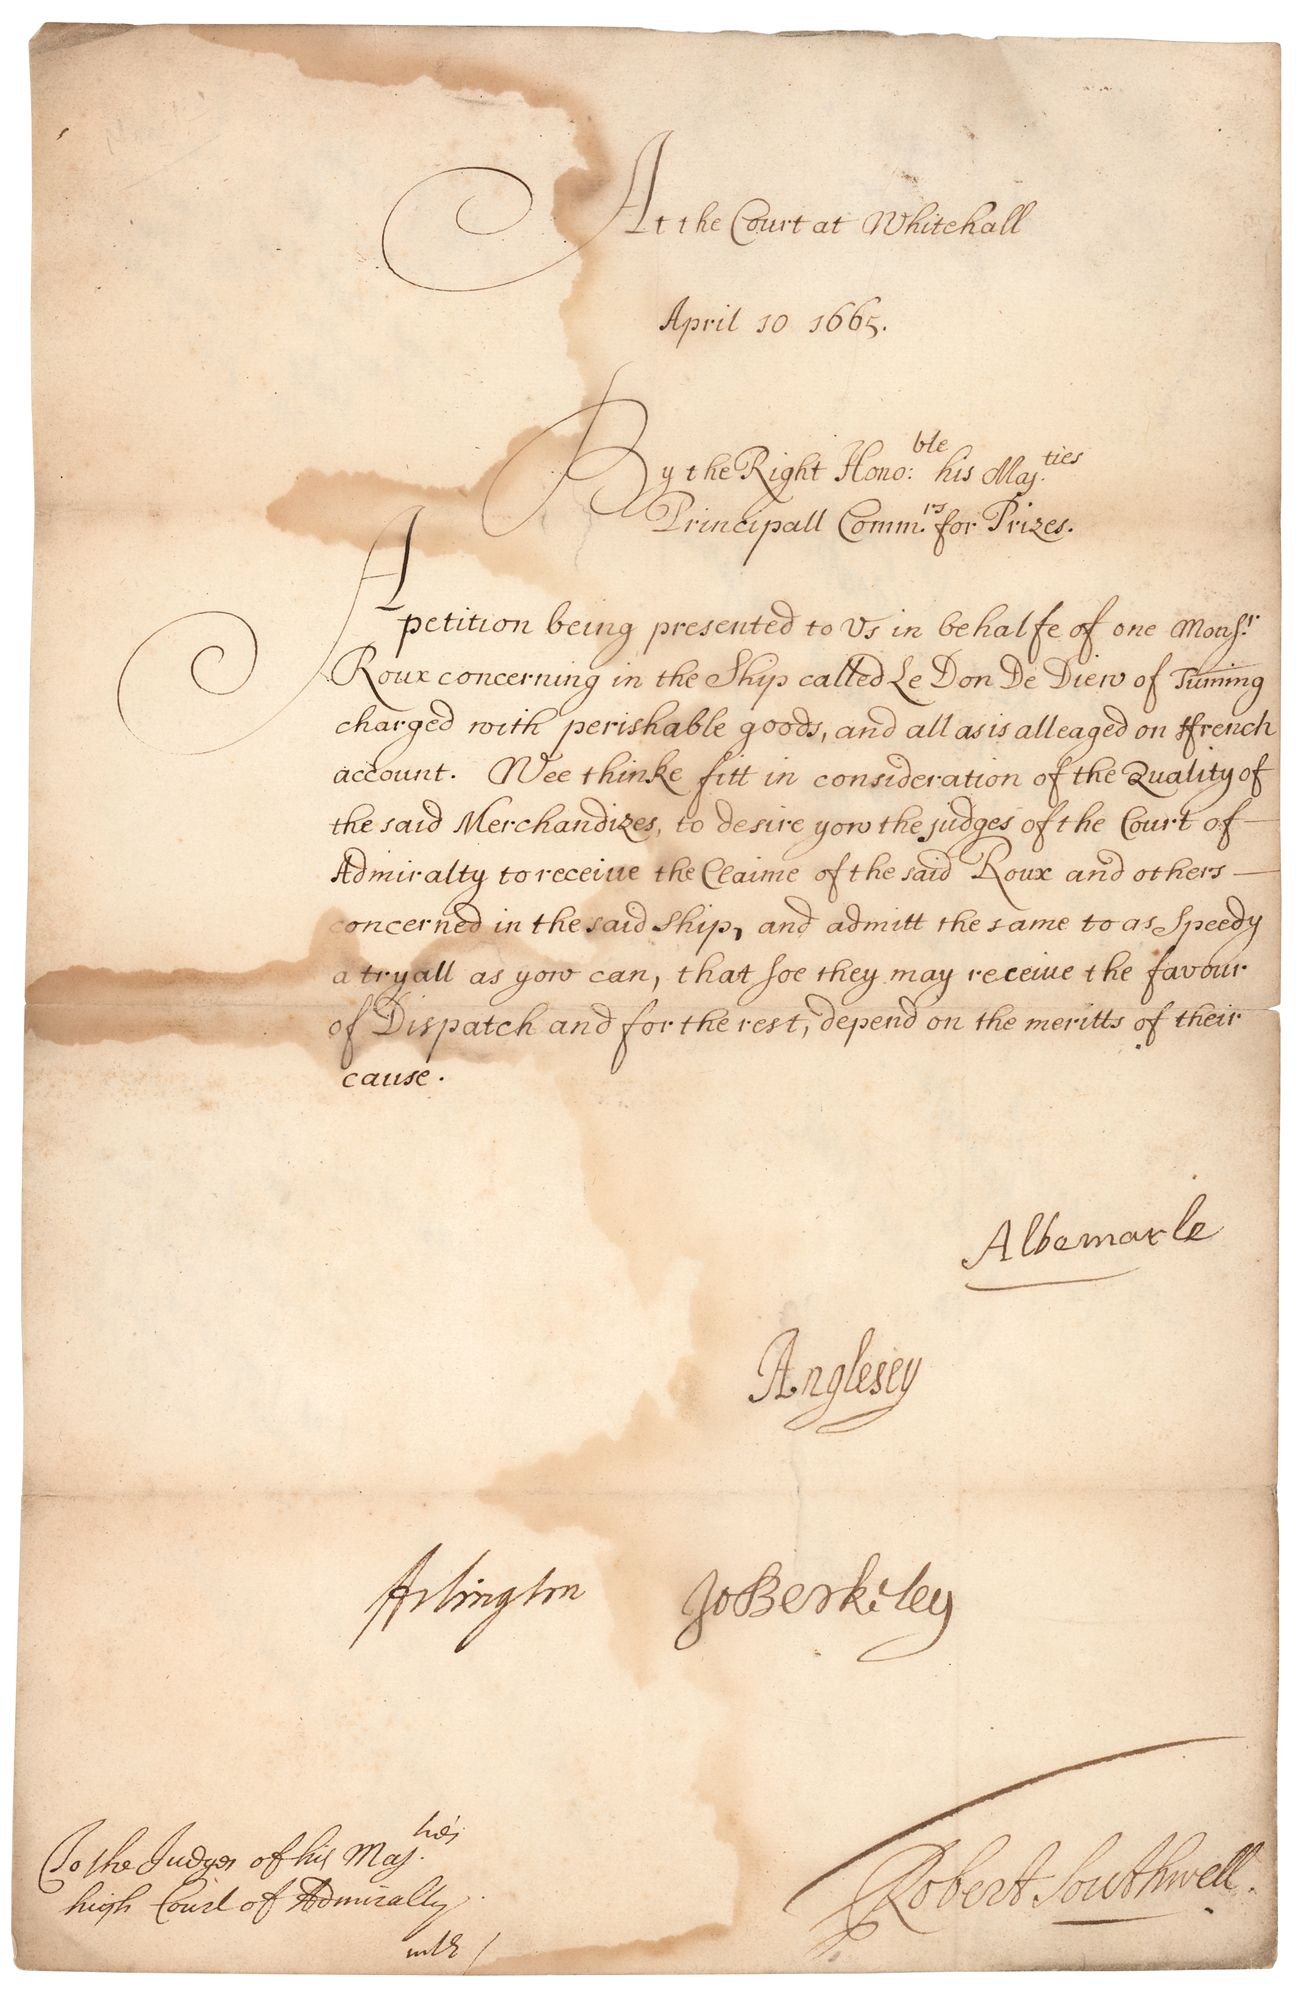 At the Court at Whitehall
April 10 1665.
By the Right Hono:ble his Maj.ties
Principall Comm.rs for Prizes.
A petition being presented to Us in behalfe of one Mons.r
Roux concerning in the Ship called Le Don De Diew of
charged with perishable goods, and all as is alleaged on ffrench
account. Wee thinke fitt in consideration of the Quality of
the said Merchandizes, to desire yow the judges of the Court of
Admiralty to receive the Claime of the said Roux and others
concerned in the said Ship, and admitt the same to as Speedy
a tryall as yow can, that soe they may receive the favour
of Dispatch and for the rest, depend on the meritts of their
cause.
Albemarle
Anglesey
Arlington JoBerkeley
To the Judges of his Maj.ties
high Court of Admiralty
Robert Southwell.